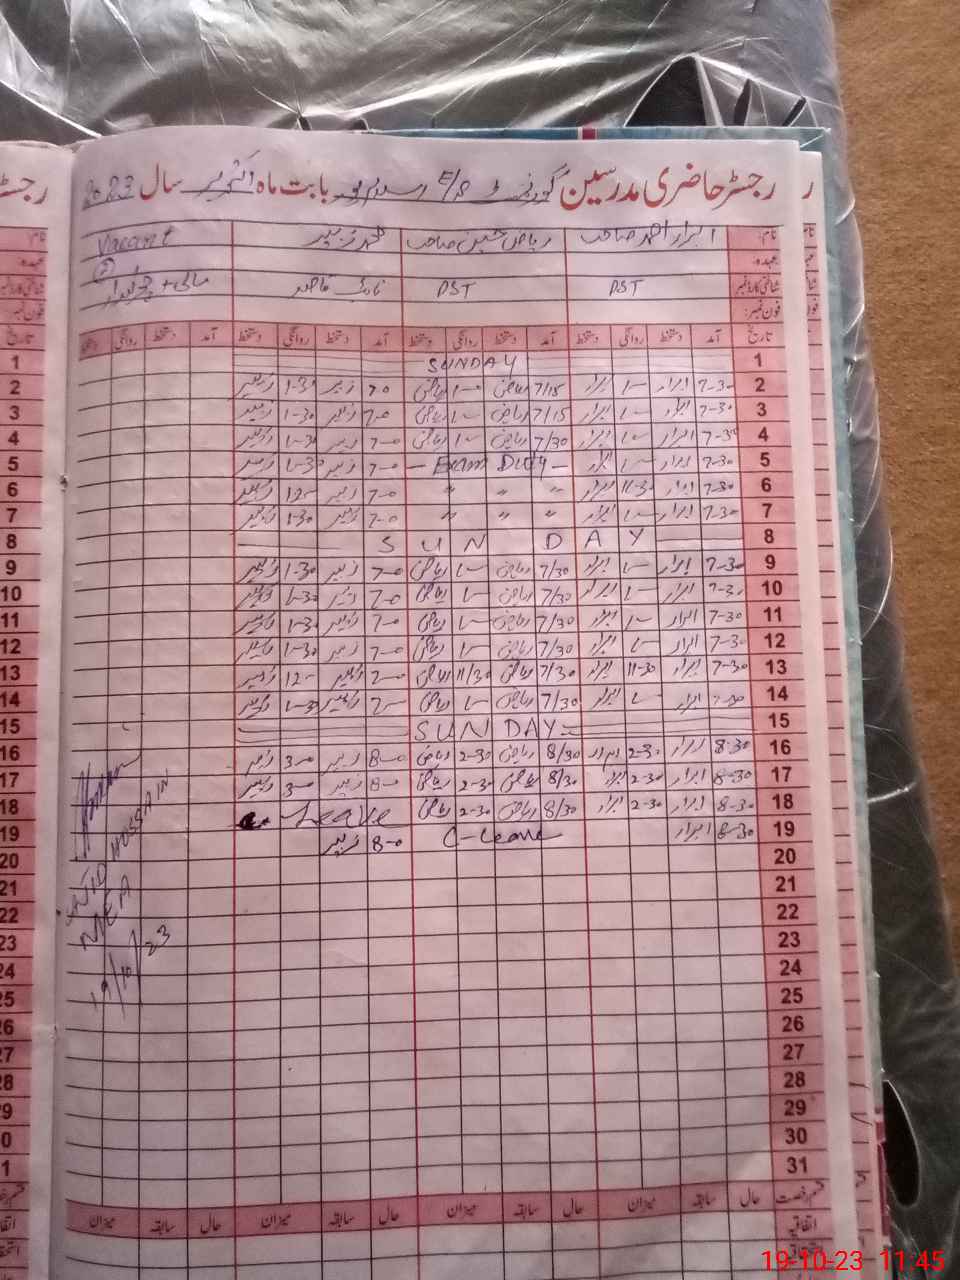 رجسٹر حاضری مدرسین گورنمنٹ بابت ماہ اکتوبر سال 2023
نام: ابرار احمد صاحب ریاض حسین صاحب محمد زبیر Vacant
عہدہ:
شناختی کارڈ نمبر PST PST نائب قاصد مالی + چوکیدار
فون نمبر:
تاریخ آمد دستخط روانگی دستخط آمد دستخط روانگی دستخط آمد دستخط روانگی دستخط آمد دستخط روانگی دستخط
1 SUNDAY
2 7-30 ابرار 1- ابرار 7/15 ریاض 1-0 ریاض 7-0 زبیر 1-30 زبیر
3 7-30 ابرار 1- ابرار 7/15 ریاض 1- ریاض 7-0 زبیر 1-30 زبیر
4 7-30 ابرار 1- ابرار 7/30 ریاض 1- ریاض 7-0 زبیر 1-30 زبیر
5 7-30 ابرار 1- ابرار - Exam Duty - 7-0 زبیر 1-30 زبیر
6 7-30 ابرار 11-30 ابرار " " " 7-0 زبیر 12- زبیر
7 7-30 ابرار 1- ابرار " " " 7-0 زبیر 1-30 زبیر
8 SUNDAY
9 7-30 ابرار 1- ابرار 7/30 ریاض 1- ریاض 7-0 زبیر 1-30 زبیر
10 7-30 ابرار 1- ابرار 7/30 ریاض 1- ریاض 7-0 زبیر 1-30 زبیر
11 7-30 ابرار 1- ابرار 7/30 ریاض 1- ریاض 7-0 زبیر 1-30 زبیر
12 7-30 ابرار 1- ابرار 7/30 ریاض 1- ریاض 7-0 زبیر 1-30 زبیر
13 7-30 ابرار 11-30 ابرار 7/30 ریاض 11/30 ریاض 7-0 زبیر 12- زبیر
14 7-30 ابرار 1- ابرار 7/30 ریاض 1- ریاض 7- زبیر 1-30 زبیر
15 SUNDAY
16 8-30 ابرار 2-30 ابرار 8/30 ریاض 2-30 ریاض 8-0 زبیر 3-0 زبیر
17 8-30 ابرار 2-30 ابرار 8/30 ریاض 2-30 ریاض 8-0 زبیر 3-0 زبیر
18 8-30 ابرار 2-30 ابرار 8/30 ریاض 2-30 ریاض Leave
19 8-30 ابرار C-Leave 8-0 زبیر
20
21
22
23
24
25
26
27
28
29
30
31
قسم رخصت حال سابقہ میزان حال سابقہ میزان حال سابقہ میزان حال سابقہ میزان
اتفاقیہ
SAJID HUSSAIN
MEA
19/10/23
19-10-23 11:45